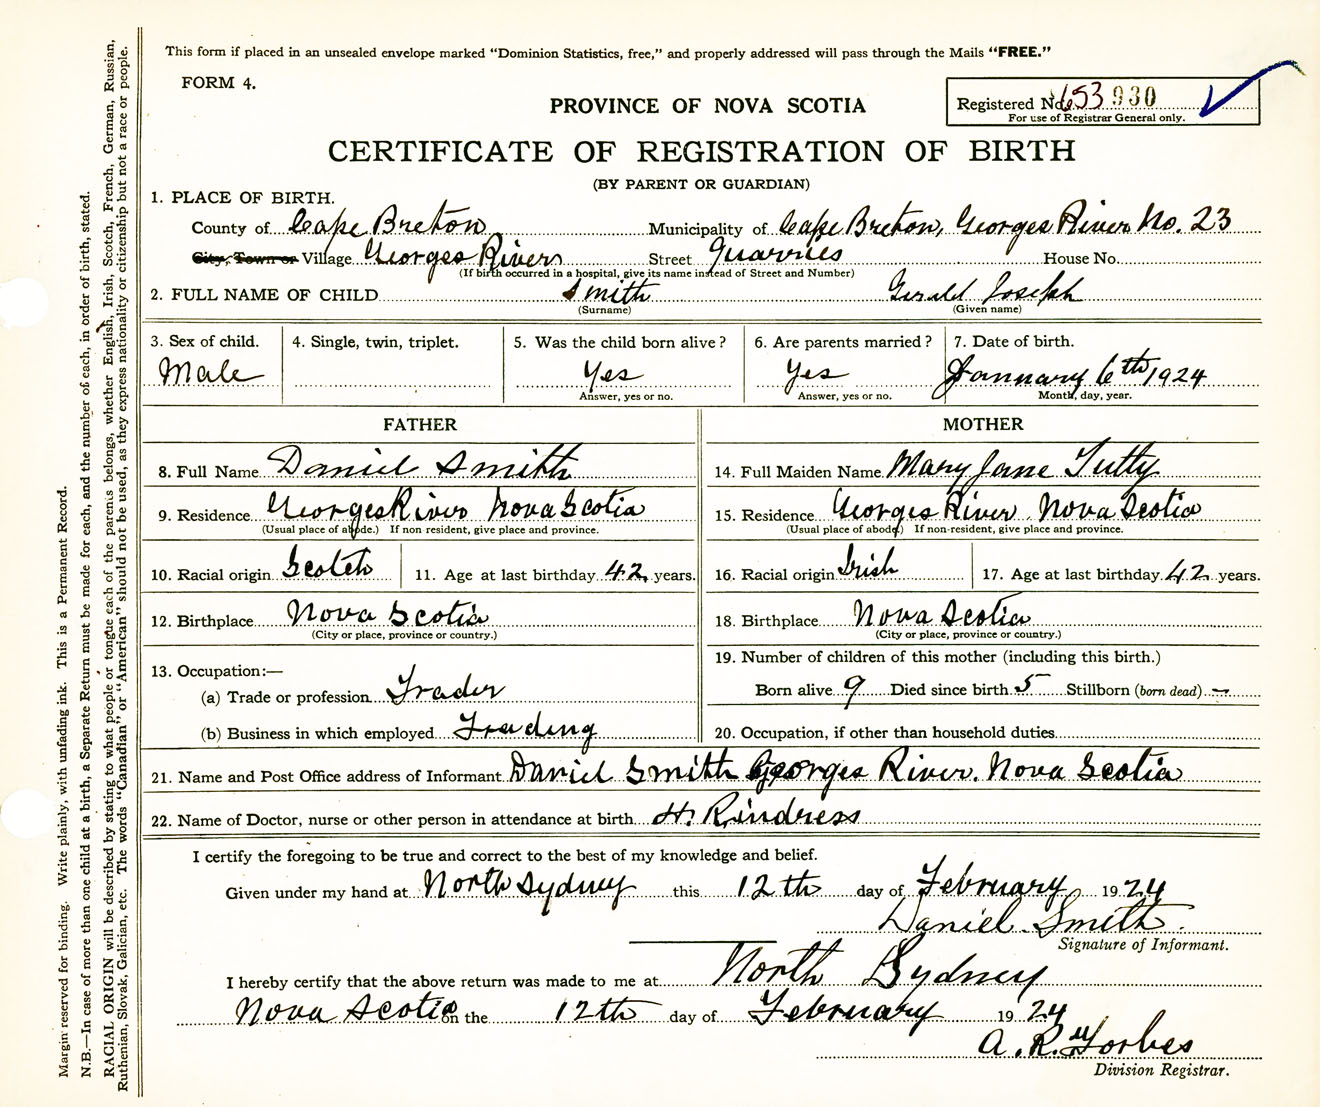 This form if placed in an unsealed envelope marked "Dominion Statistics, free," and properly addressed will pass through the Mails "FREE."
FORM 4.
PROVINCE OF NOVA SCOTIA
Registered No. 653930
For use of Registrar General only.
CERTIFICATE OF REGISTRATION OF BIRTH
(BY PARENT OR GUARDIAN)
1. PLACE OF BIRTH.
County of Cape Breton Municipality of Cape Breton, Georges River No. 23
City, Town or Village Georges River Street Quarries House No.
(If birth occurred in a hospital, give its name instead of Street and Number)
2. FULL NAME OF CHILD Smith Gerald Joseph
(Surname) (Given name)
3. Sex of child. 4. Single, twin, triplet. 5. Was the child born alive? 6. Are parents married? 7. Date of birth.
Male Yes Yes January 6th 1924
Answer, yes or no. Answer, yes or no. Month, day, year.
FATHER MOTHER
8. Full Name Daniel Smith 14. Full Maiden Name Mary Jane Tutty
9. Residence Georges River Nova Scotia 15. Residence Georges River Nova Scotia
(Usual place of abode.) If non-resident, give place and province. (Usual place of abode) If non-resident, give place and province.
10. Racial origin Scotch 11. Age at last birthday 42 years. 16. Racial origin Irish 17. Age at last birthday 42 years.
12. Birthplace Nova Scotia 18. Birthplace Nova Scotia
(City or place, province or country.) (City or place, province or country.)
19. Number of children of this mother (including this birth.)
13. Occupation:—
(a) Trade or profession Trader Born alive 9 Died since birth 5 Stillborn (born dead) —
(b) Business in which employed Trading 20. Occupation, if other than household duties
21. Name and Post Office address of Informant Daniel Smith Georges River, Nova Scotia
22. Name of Doctor, nurse or other person in attendance at birth H. Rindress
I certify the foregoing to be true and correct to the best of my knowledge and belief.
Given under my hand at North Sydney this 12th day of February 1924
Daniel Smith.
Signature of Informant.
I hereby certify that the above return was made to me at North Sydney
Nova Scotia on the 12th day of February 1924
A. R. Forbes
Division Registrar.
Margin reserved for binding. Write plainly, with unfading ink. This is a Permanent Record.
N.B.—In case of more than one child at a birth, a Separate Return must be made for each, and the number of each, in order of birth, stated.
RACIAL ORIGIN will be described by stating to what people or tongue each of the parents belongs, whether English, Irish, Scotch, French, German, Russian,
Ruthenian, Slovak, Galician, etc. The words "Canadian" or "American" should not be used, as they express nationality or citizenship but not a race or people.